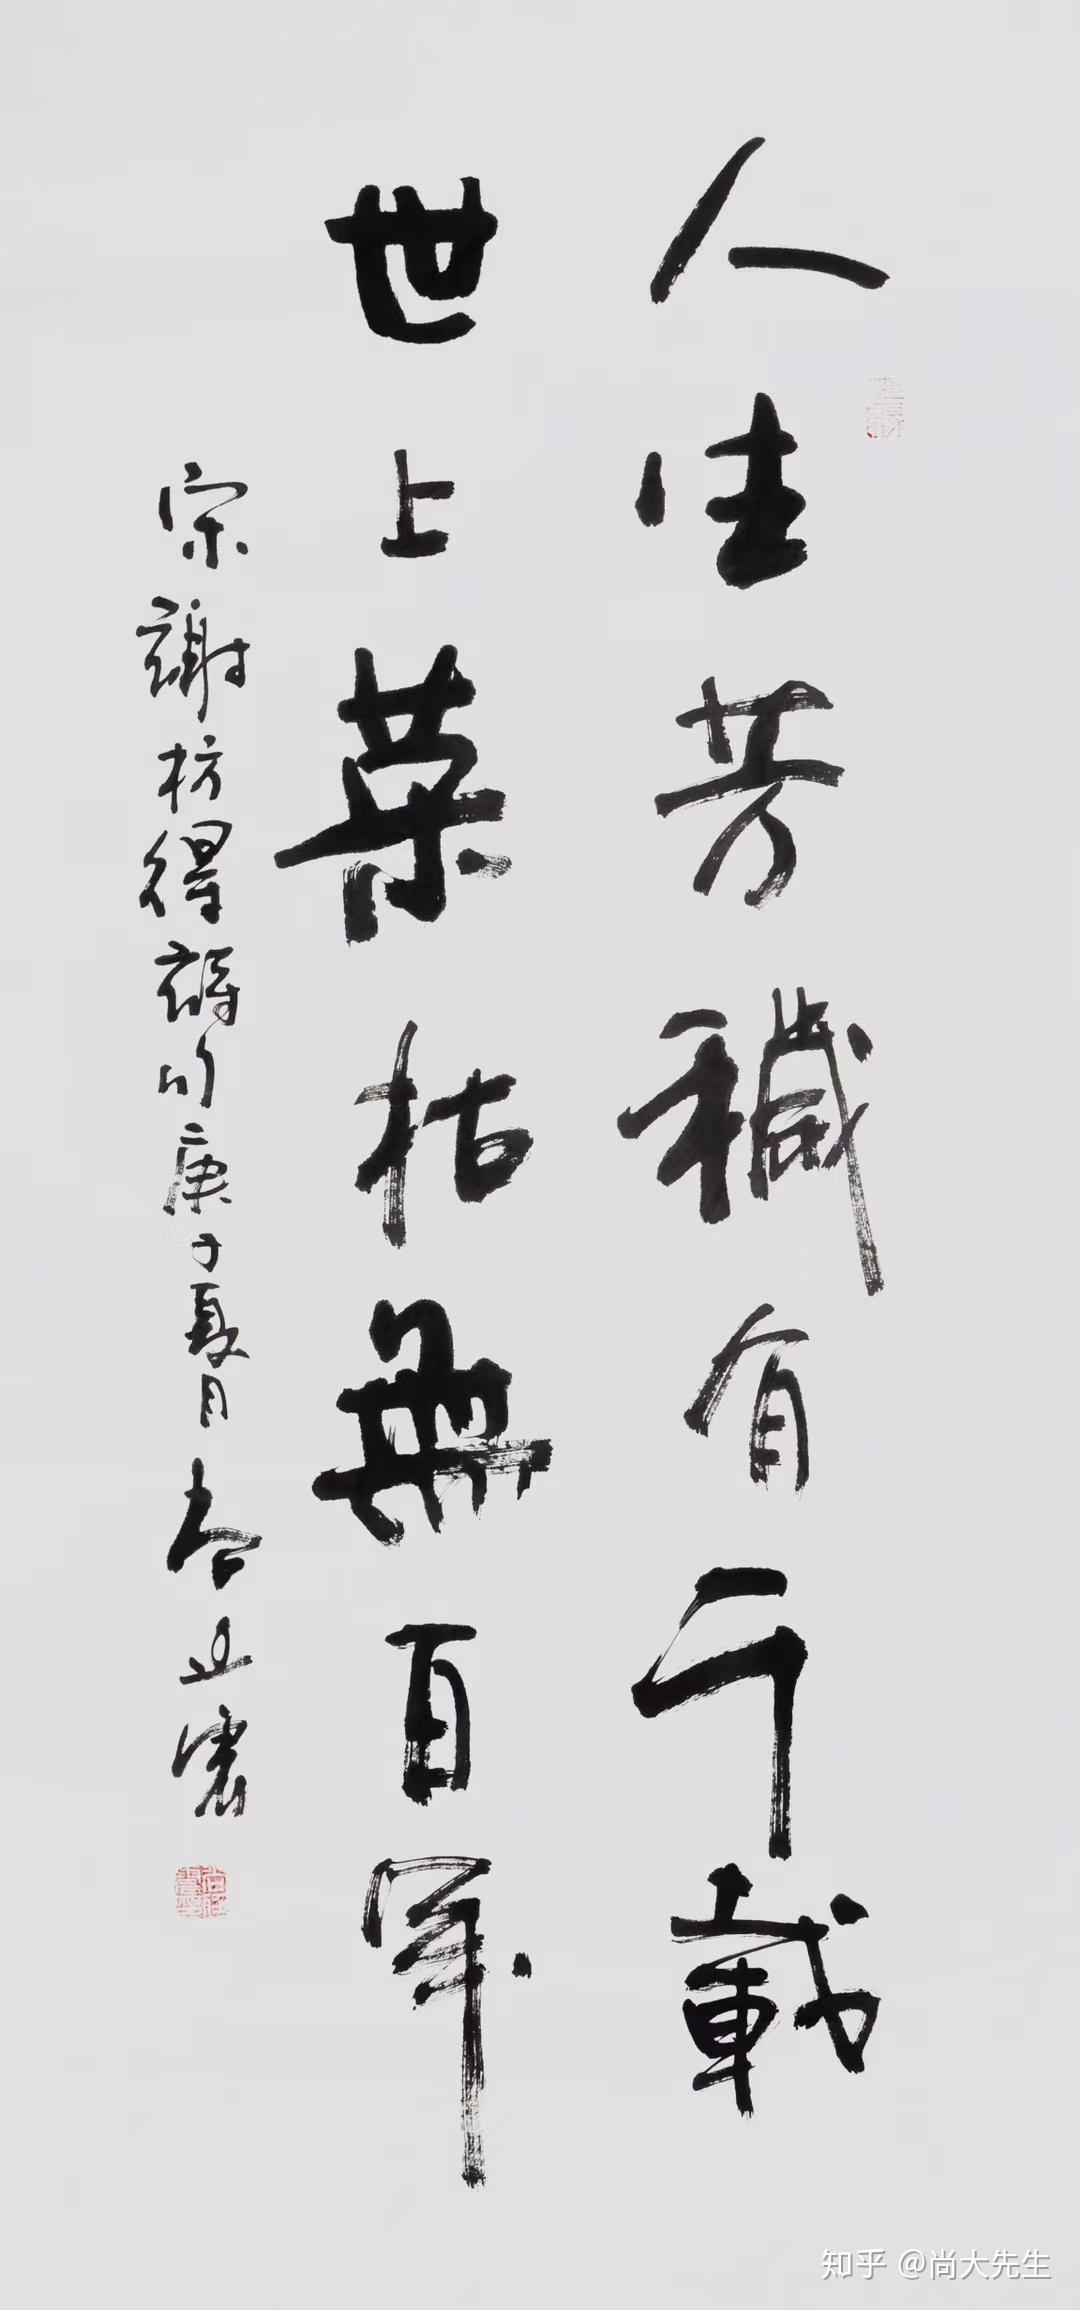 人生芳穢有千載
世上荣枯無百年
宋謝枋得詩句庚子夏月
知乎 @尚大先生